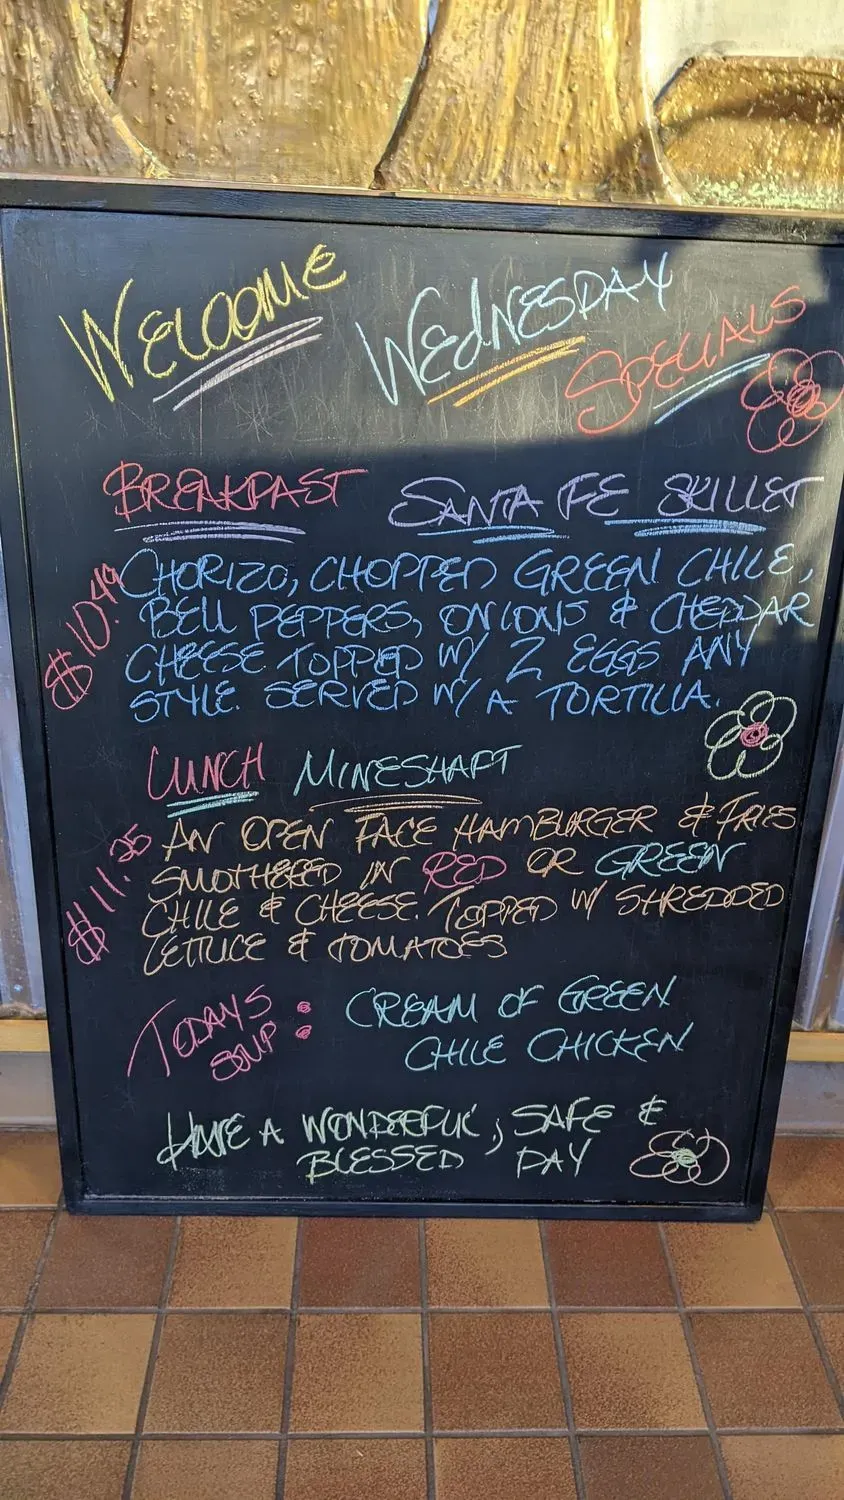 WELCOME WEDNESDAY SPECIALS
BREAKFAST SANTA FE SKILLET
$10.49
CHORIZO, CHOPPED GREEN CHILE,
BELL PEPPERS, ONIONS & CHEDDAR
CHEESE TOPPED W/ 2 EGGS ANY
STYLE. SERVED W/ A TORTILLA.
LUNCH MINESHAFT
$11.25
AN OPEN FACE HAMBURGER & FRIES
SMOTHERED IN RED OR GREEN
CHILE & CHEESE. TOPPED W/ SHREDDED
LETTUCE & TOMATOES
TODAYS SOUP: CREAM OF GREEN
CHILE CHICKEN
HAVE A WONDERFUL, SAFE &
BLESSED DAY